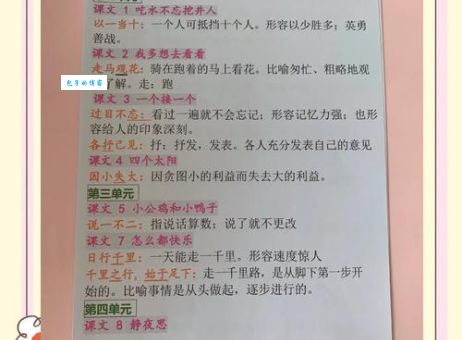 课文 1 吃水不忘挖井人
以一当十：一个人可抵挡十个人。形容以少胜多；英勇
善战。
课文 2 我多想去看看
走马观花：骑在跑着的马上看花。比喻匆忙、粗略地观
了解。走：跑
包子的博客
课文 3 一个接一个
过目不忘：看过一遍就不会忘记；形容记忆力强；也形
容给人的印象深刻。
各抒己见：抒：抒发，发表。各人充分发表自己的意见
课文 4 四个太阳
因小失大：因贪图小的利益而失去大的利益。
第三单元
课文 5 小公鸡和小鸭子
说一不二：指说话算数；说了就不更改
课文 7 怎么都快乐
日行千里：一天能走一千里。形容速度惊人
千里之行，始于足下：走一千里路，是从脚下第一步开
始的。比喻事情是从头做起，逐步进行的。
第四单元
课文 8 静夜思